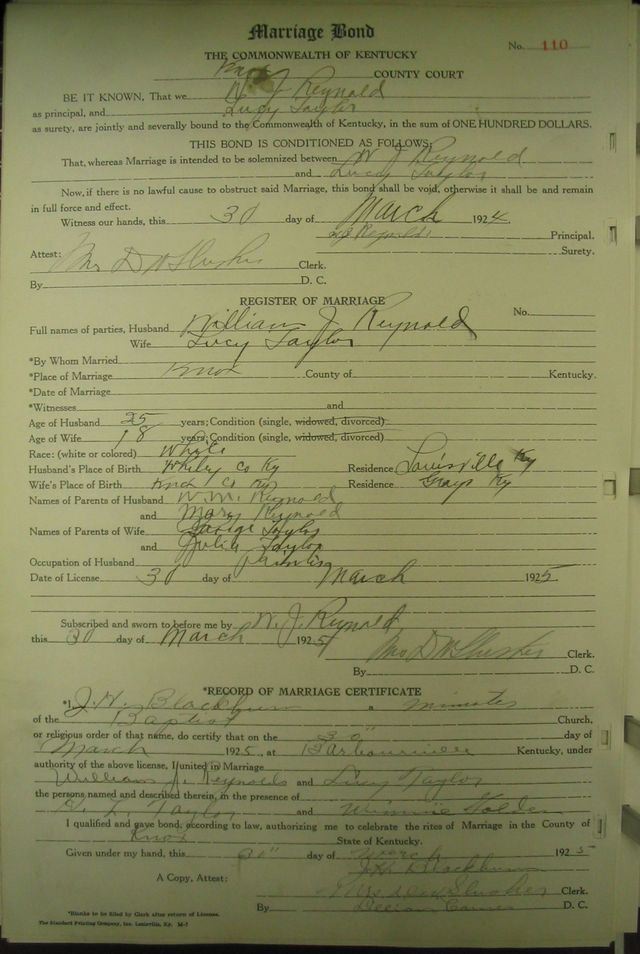 Marriage Bond
No. 110
THE COMMONWEALTH OF KENTUCKY
Knox COUNTY COURT
BE IT KNOWN, That we W. J. Reynold
as principal, and Lucy Taylor
as surety, are jointly and severally bound to the Commonwealth of Kentucky, in the sum of ONE HUNDRED DOLLARS.
THIS BOND IS CONDITIONED AS FOLLOWS:
That, whereas Marriage is intended to be solemnized between W J Reynold
and Lucy Taylor
Now, if there is no lawful cause to obstruct said Marriage, this bond shall be void, otherwise it shall be and remain
in full force and effect.
Witness our hands, this 30 day of March 1924.
Reynolds Principal.
Attest: Surety.
Mrs D W Slusher Clerk.
By D. C.
REGISTER OF MARRIAGE
No.
Full names of parties, Husband William J Reynold
Wife Lucy Taylor
*By Whom Married
*Place of Marriage Knox County of Kentucky.
*Date of Marriage
*Witnesses and
Age of Husband 25 years; Condition (single, widowed, divorced)
Age of Wife 18 years; Condition (single, widowed, divorced)
Race: (white or colored) White
Husband's Place of Birth Whitley Co Ky Residence Louisville Ky
Wife's Place of Birth Knox Co Ky Residence Grays Ky
Names of Parents of Husband W.M. Reynold
and Mary Reynold
Names of Parents of Wife George Taylor
and Julia Taylor
Occupation of Husband
Date of License 30 day of March 1925.
Subscribed and sworn to before me by W. J. Reynold
this 30 day of March 1925
Mrs D W Slusher Clerk.
By D. C.
*RECORD OF MARRIAGE CERTIFICATE
*I, J. H. Blackburn a minister
of the Baptist Church,
or religious order of that name, do certify that on the 30" day of
March 1925, at Barbourville Kentucky, under
authority of the above license, I united in Marriage
William J. Reynolds and Lucy Taylor
the persons named and described therein, in the presence of
Taylor and Minnie Golden
I qualified and gave bond, according to law, authorizing me to celebrate the rites of Marriage in the County of
Knox State of Kentucky.
Given under my hand, this 30" day of March 1925
J. H. Blackburn
A Copy, Attest: Mrs D W Slusher Clerk.
By D. C.
*Blanks to be filled by Clerk after return of License.
The Standard Printing Company, Inc. Louisville, Ky. M-7